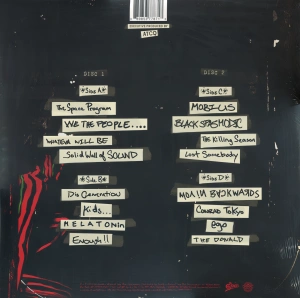 ATCQ
DISC 1
*Side A*
The Space Program
WE THE PEOPLE....
WHATEVER WILL BE
Solid Wall of SOUND
*Side B*
Dis Generation
Kids...
MELATONIN
Enough!!
DISC 2
*Side C*
MOBIUS
BLACK SPASMODIC
The Killing Season
Lost Somebody
*Side D*
MOVIN BACKWARDS
Conrad Tokyo
ego
THE DONALD